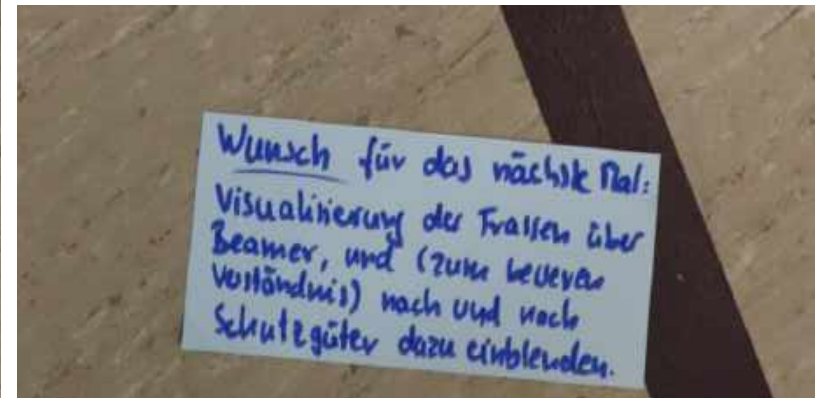 Wunsch für das nächste Mal:
Visualisierung der Trassen über
Beamer, und (zum besseren
Verständnis) nach und nach
Schutzgüter dazu einblenden.